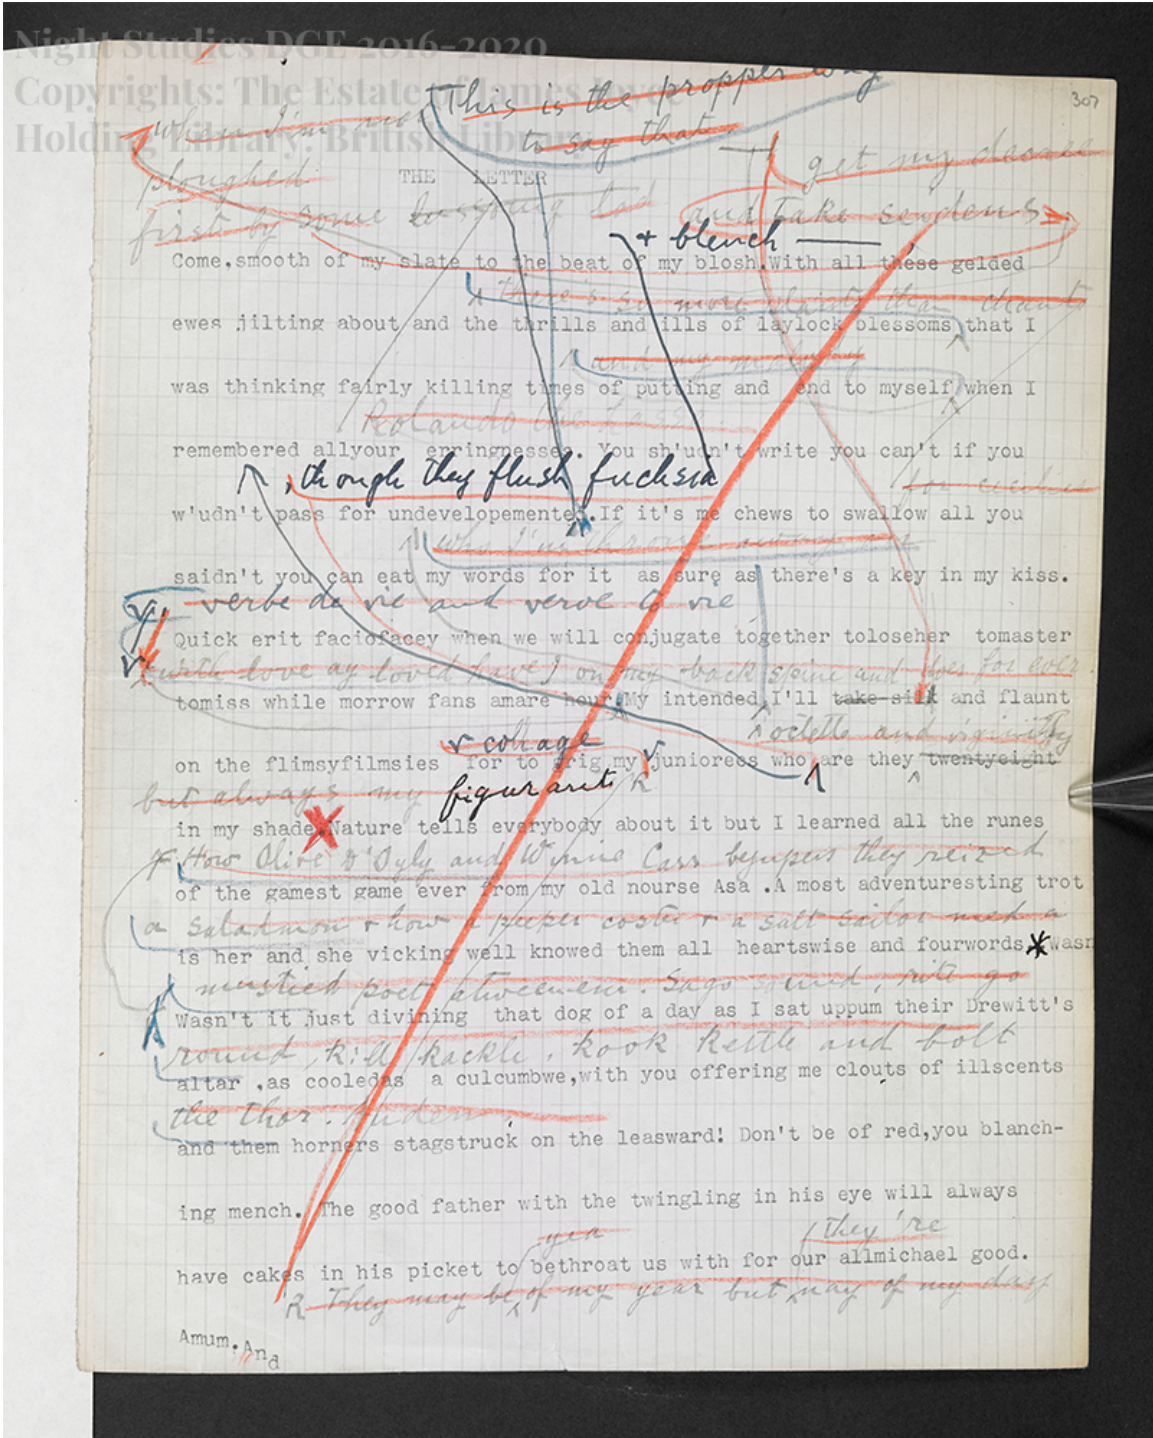 Night Studies DGE 2016-2020
Copyrights: The Estate of James Joyce
Holding Library: British Library
307
This is the propper way
to say that
when I'm not
ploughed
first by some
Lad
get my decree
and take seidens
THE LETTER
+ blench
Come,smooth of my slate to the beat of my blosh.With all these gelded
there's so more plants than chants
ewes jilting about and the thrills and ills of laylock blessoms that I
and my
was thinking fairly killing times of putting and end to myself when I
Rolando the Lasso.
remembered allyour erringnesses. You sh'udn't write you can't if you
, though they flush fuchsia
for
w'udn't pass for undevelopemented.If it's me chews to swallow all you
who I'm throne away
saidn't you can eat my words for it as sure as there's a key in my kiss.
verbe de vie and verve à vie
Quick erit faciofacey when we will conjugate together toloseher tomaster
with love ay loved have I on my back spine and does for ever.
tomiss while morrow fans amare hour.My intended,I'll take silk and flaunt
octette and viginity
cottage
on the flimsyfilmsies for to grig my juniorees who are they twentyeight
but always my figurants
in my shade.Nature tells everybody about it but I learned all the runes
How Olive d'Oyly and Winnie Carr bejupers they reized
of the gamest game ever from my old nourse Asa .A most adventuresting trot
a saladmon & how a peeper coster & a salt sailor med a
is her and she vicking well knowed them all heartswise and fourwords. wasn
mustied poet atweeneem. Sago sound, rite go
Wasn't it just divining that dog of a day as I sat uppum their Drewitt's
round, kill kackle, kook kettle and bolt
altar ,as cooledas a culcumbwe,with you offering me clouts of illscents
the thor. Auden.
and them horners stagstruck on the leasward! Don't be of red,you blanch-
ing mench. The good father with the twingling in his eye will always
yea
they're
have cakes in his picket to bethroat us with for our allmichael good.
They may be of my year but nay of my day
Amum. And